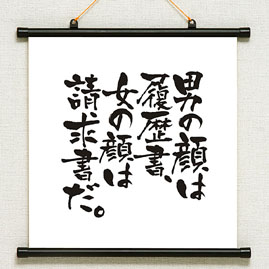 男の顔は
履歴書、
女の顔は
請求書だ。